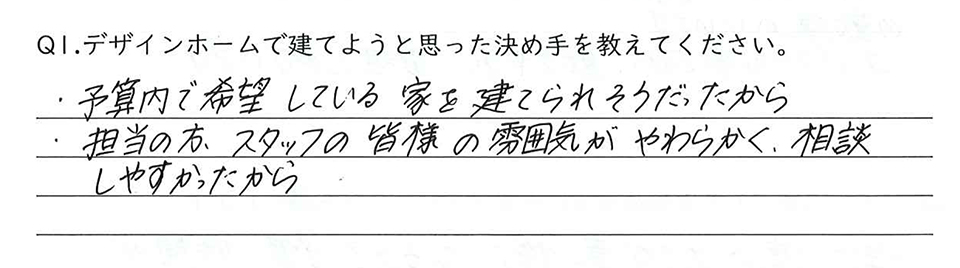 Q1.デザインホームで建てようと思った決め手を教えてください。
・予算内で希望している家を建てられそうだったから
・担当の方、スタッフの皆様の雰囲気がやわらかく、相談
しやすかったから